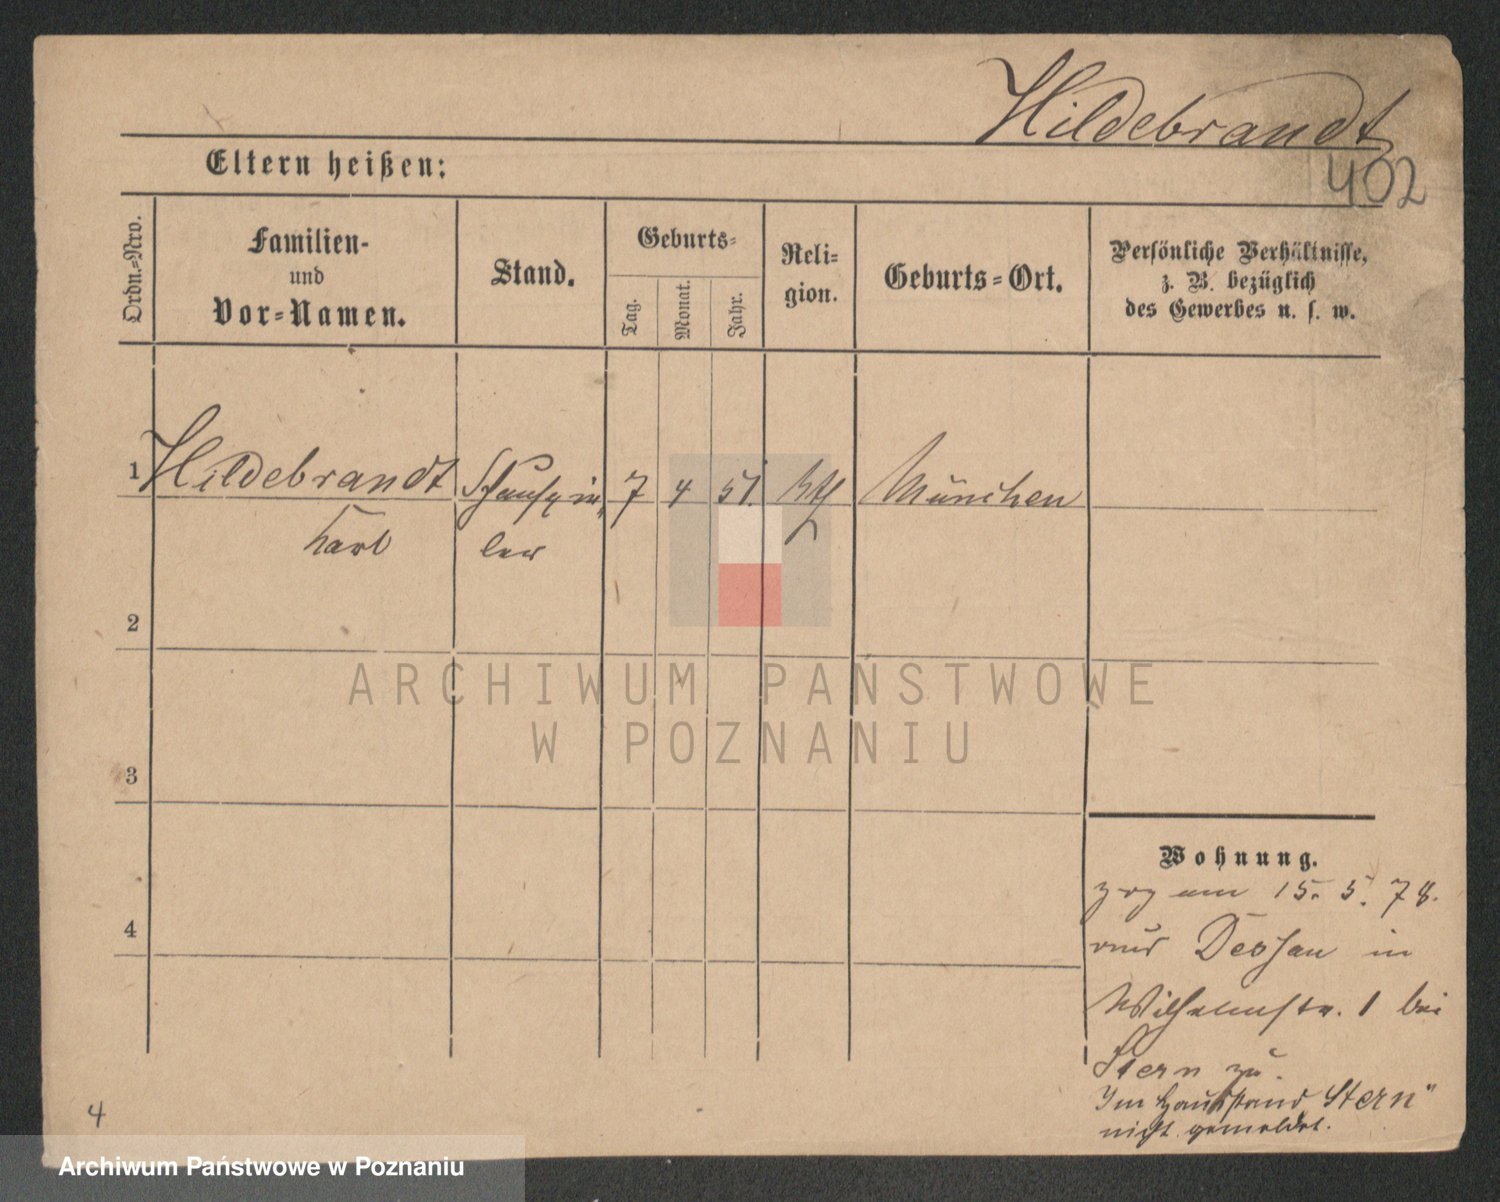 Hildebrandt
402
Eltern heißen:
Ordn.-Nro.
Familien-
und
Vor-Namen.
Stand.
Geburts-
Tag.
Monat.
Jahr.
Reli-
gion.
Geburts-Ort.
Persönliche Verhältnisse,
z. B. bezüglich
des Gewerbes u. s. w.
1
Hildebrandt
Karl
Schauspie-
ler
7
4
51.
kth
München
2
3
4
Wohnung.
zog am 15. 5. 78.
aus Dessau in
Wilhelmstr. 1 bei
Stern zu.
Im Hausstand Stern"
nicht gemeldet.
4
ARCHIWUM PAŃSTWOWE
W POZNANIU
Archiwum Państwowe w Poznaniu